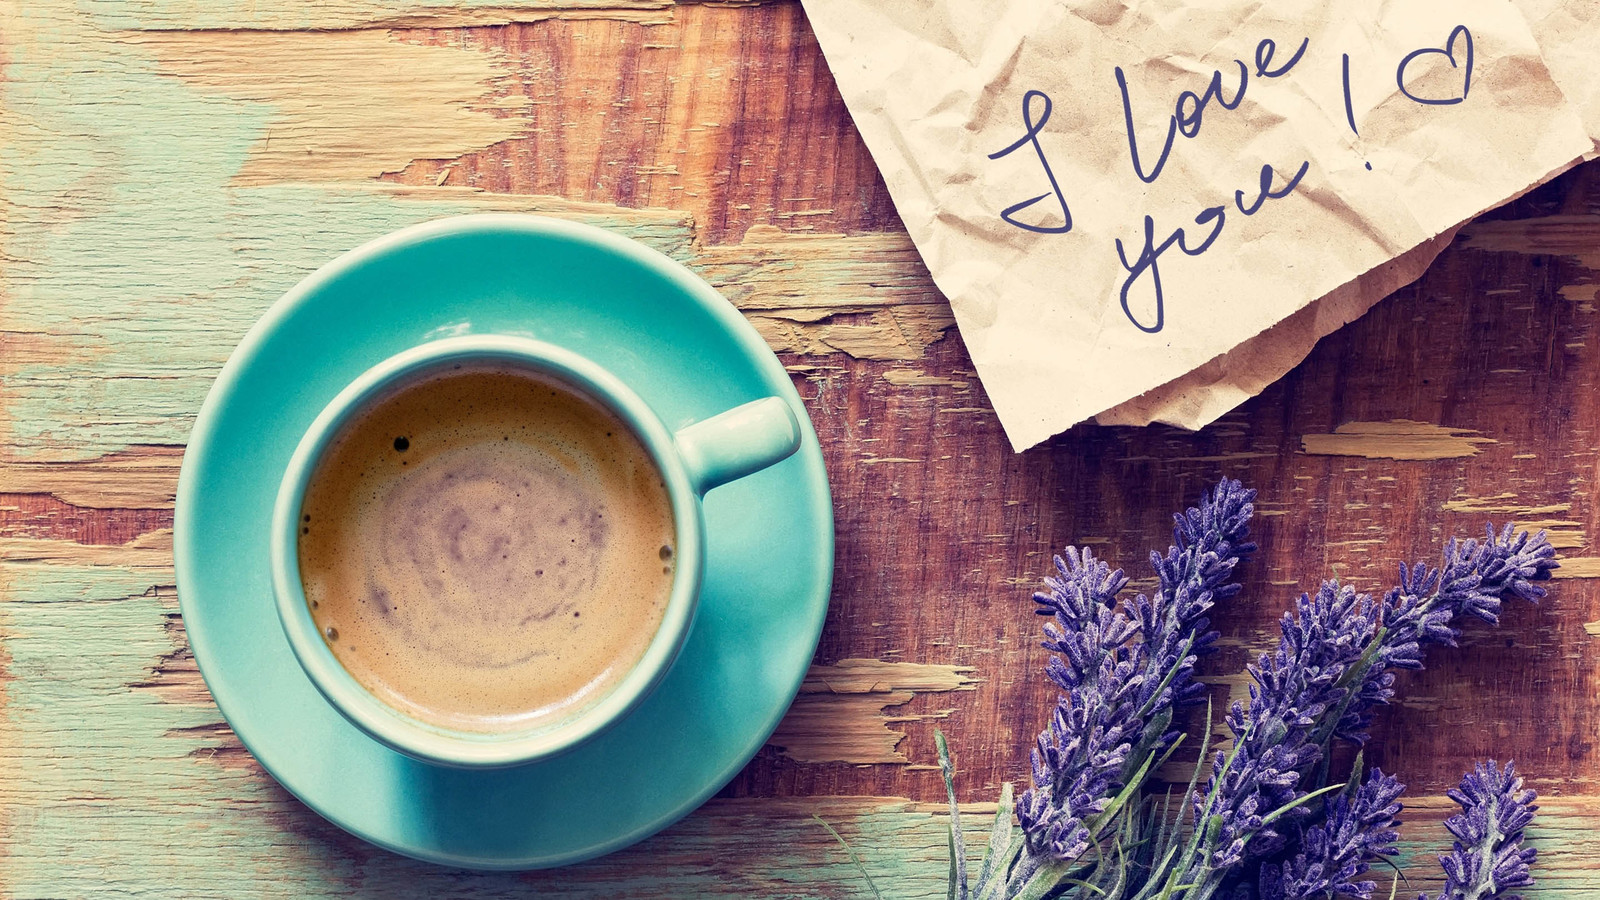 I love
you! ♡